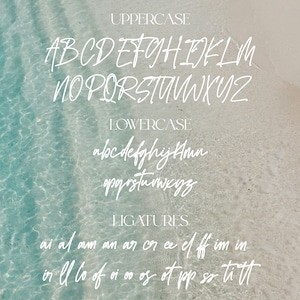 UPPERCASE
ABCDEFGHIJKLM
NOPQRSTUVWXYZ
LOWERCASE
abcdefghijklmn
opqrstuvwxyz
LIGATURES
ai al am an ar cr ee el ff im in
ir ll lo of oi oo os ot pp ss ti tt